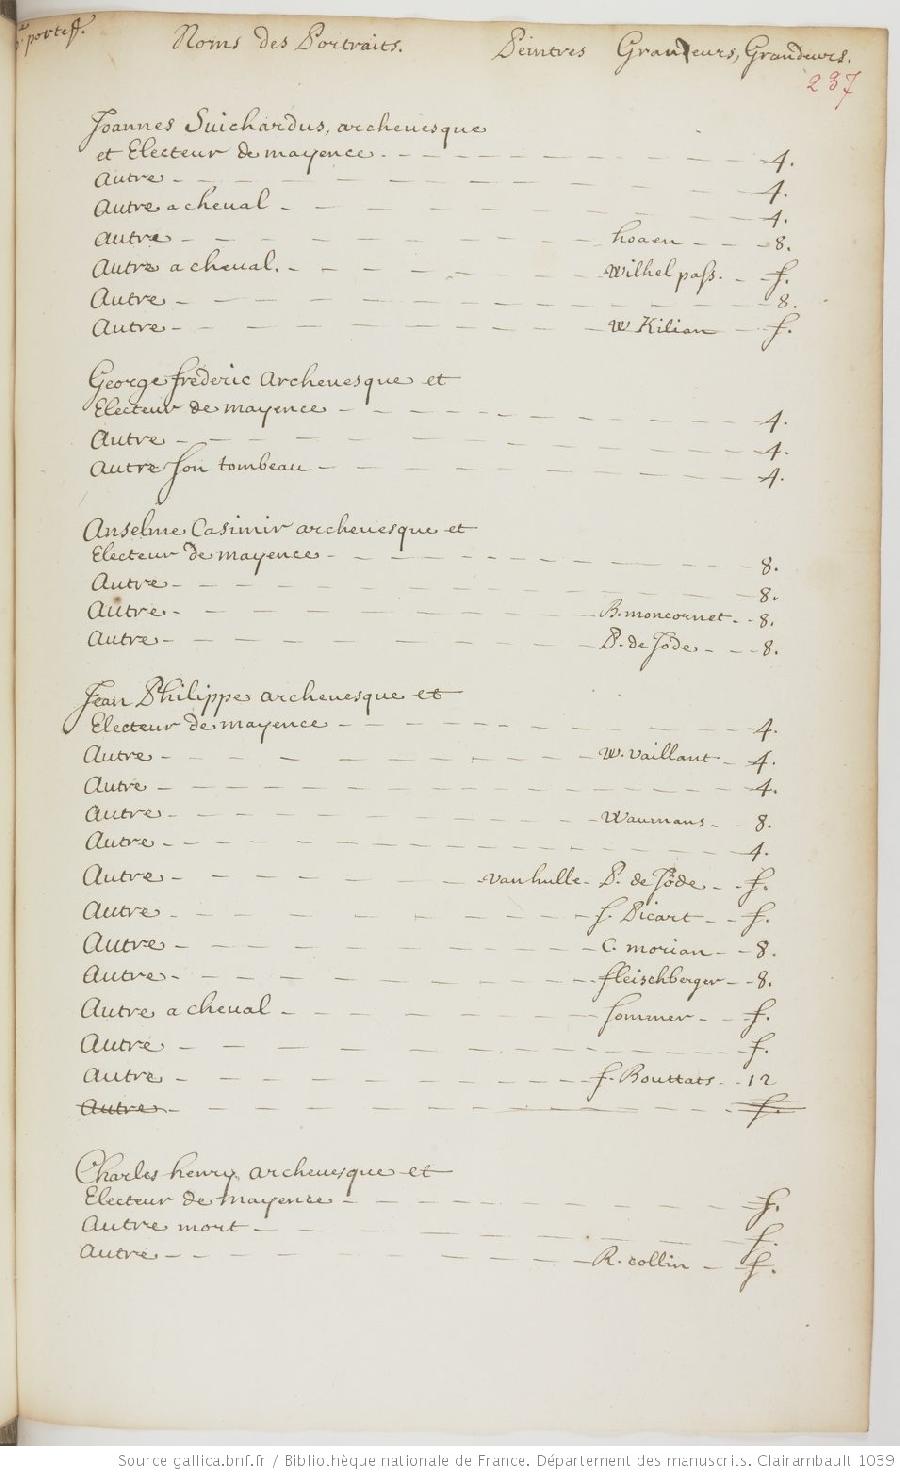 portef. Noms des Portraits. Peintres Graveurs, Grandeurs.
237
Joannes Suichardus, archeuesque
et Electeur de mayence. 4.
Autre 4.
Autre a cheual 4.
Autre hoaen 8.
Autre a cheual. Wilhel pass. f.
Autre 8.
Autre W Kilian f.
George frederic Archeuesque et
Electeur de mayence 4.
Autre 4.
Autre son tombeau 4.
Anselme Casimir archeuesque et
Electeur de mayence 8.
Autre 8.
Autre B. moncornet 8.
Autre P. de Jode 8.
Jean Philippe archeuesque et
Electeur de mayence 4.
Autre W. vaillant 4.
Autre 4.
Autre Waumans 8.
Autre 4.
Autre vanhulle P. de Jode f.
Autre f. Picart f.
Autre C. morian 8.
Autre fleischberger 8.
Autre a cheual sommer f.
Autre f.
Autre f. Bouttats 12
Autre f.
Charles henry archeuesque et
Electeur de mayence f.
Autre mort f.
Autre R. collin f.
Source gallica.bnf.fr / Bibliothèque nationale de France. Département des manuscrits. Clairambault 1039